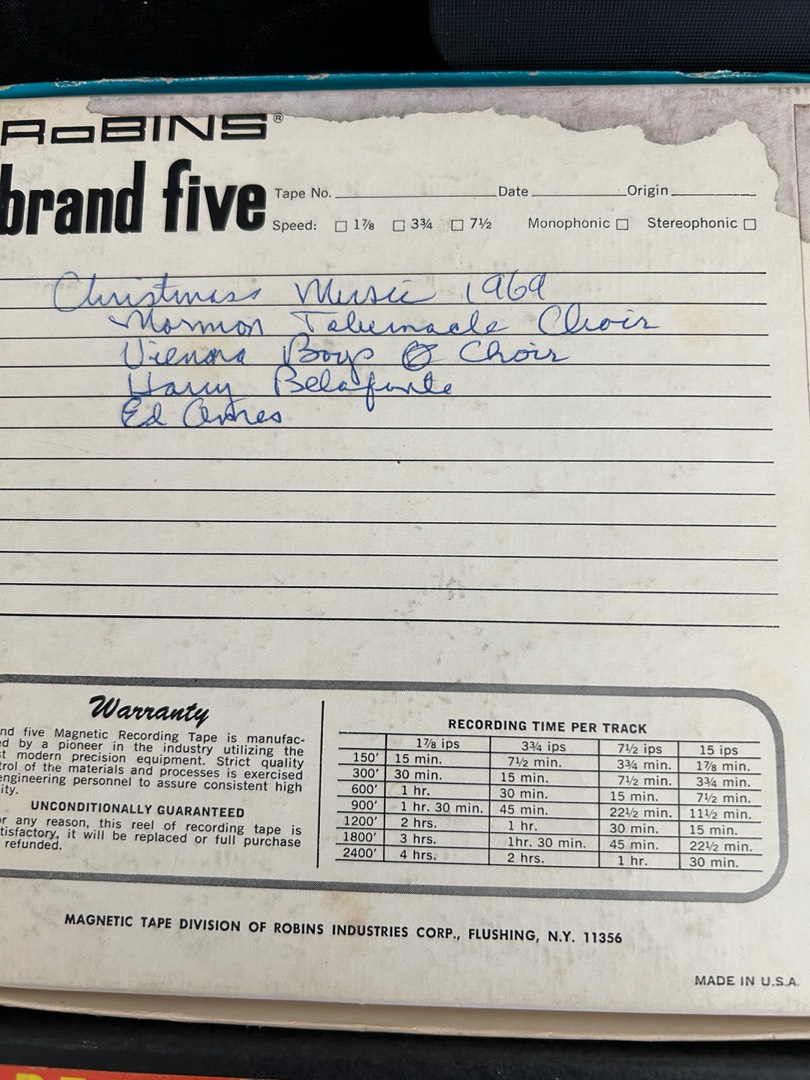 RoBINS®
brand five
Tape No. Date Origin
Speed: □ 1⅞ □ 3¾ □ 7½ Monophonic □ Stereophonic □
Christmas Music 1969
Mormon Tabernacle Choir
Vienna Boys Choir
Harry Belafonte
Ed Ames
Warranty
nd five Magnetic Recording Tape is manufac-
ed by a pioneer in the industry utilizing the
t modern precision equipment. Strict quality
trol of the materials and processes is exercised
engineering personnel to assure consistent high
ity.
UNCONDITIONALLY GUARANTEED
or any reason, this reel of recording tape is
tisfactory, it will be replaced or full purchase
refunded.
RECORDING TIME PER TRACK
1⅞ ips 3¾ ips 7½ ips 15 ips
150' 15 min. 7½ min. 3¾ min. 1⅞ min.
300' 30 min. 15 min. 7½ min. 3¾ min.
600' 1 hr. 30 min. 15 min. 7½ min.
900' 1 hr. 30 min. 45 min. 22½ min. 11½ min.
1200' 2 hrs. 1 hr. 30 min. 15 min.
1800' 3 hrs. 1hr. 30 min. 45 min. 22½ min.
2400' 4 hrs. 2 hrs. 1 hr. 30 min.
MAGNETIC TAPE DIVISION OF ROBINS INDUSTRIES CORP., FLUSHING, N.Y. 11356
MADE IN U.S.A.